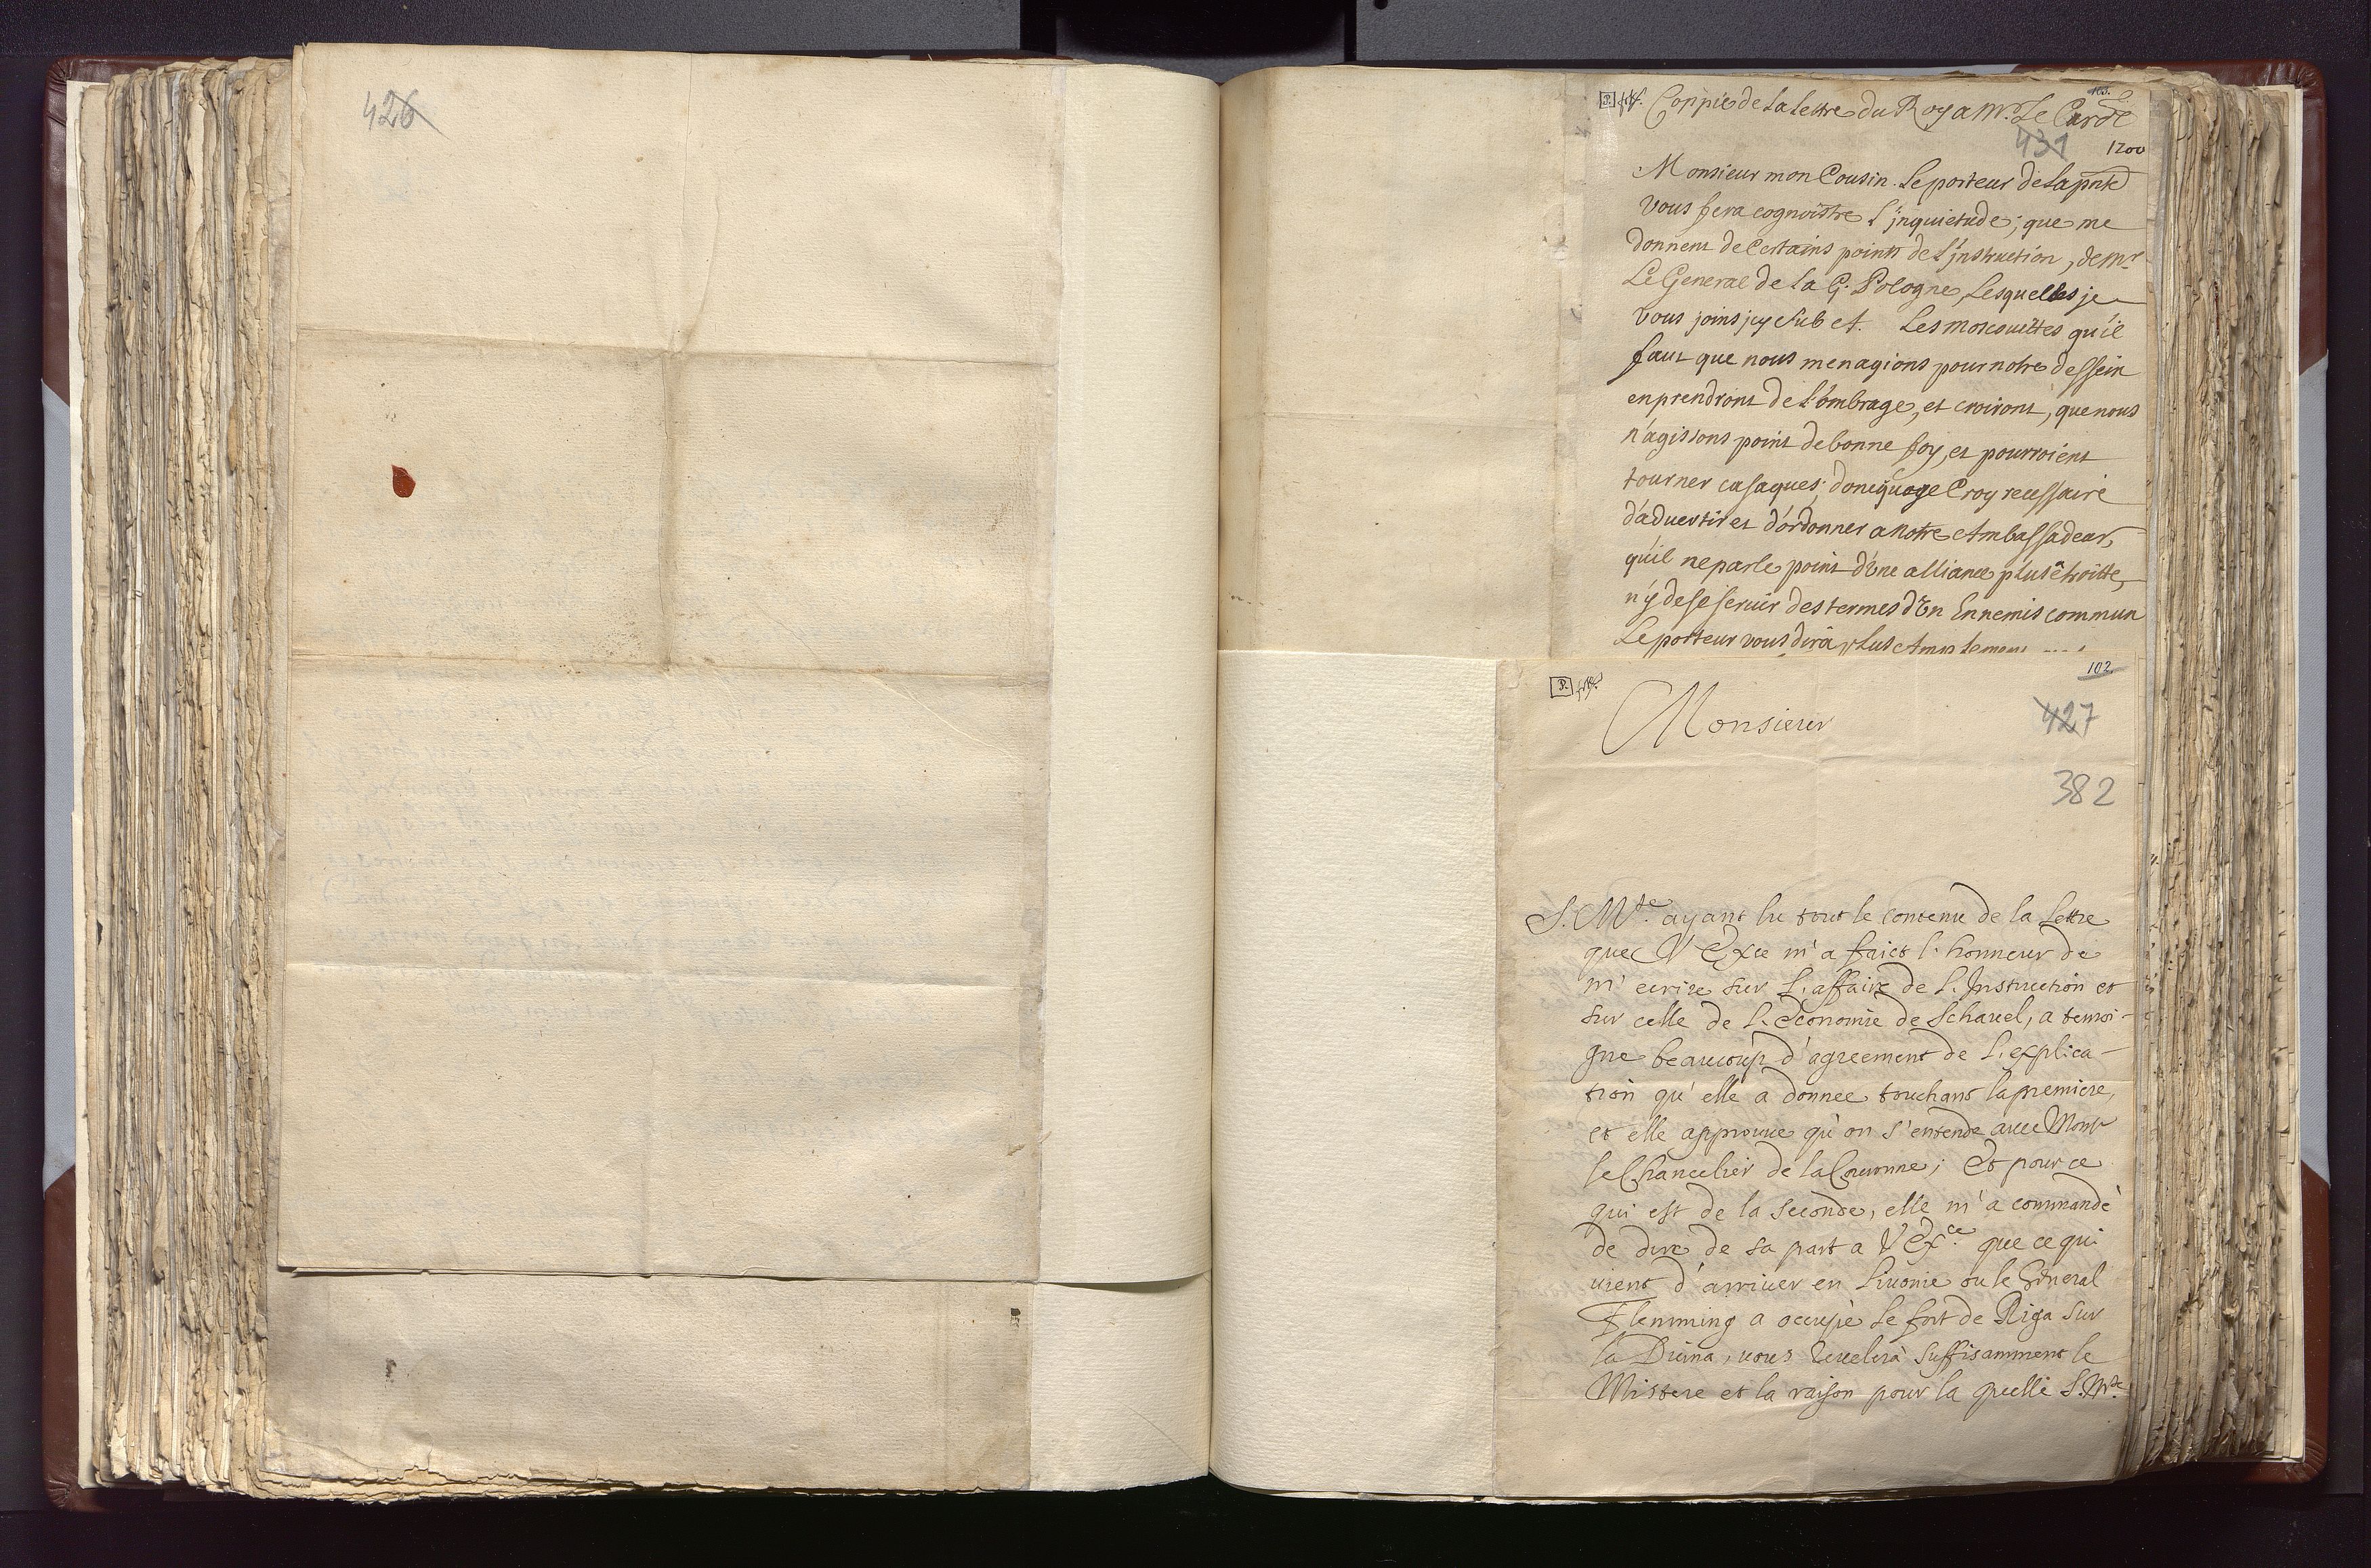 426
103.
Coppie de La lettre du Roy a Mr. Le Cardl
431
1700
Monsieur mon Cousin. Le porteur de La pnte
vous fera cognoistre L'jnquietude; que me
donnent de Certains points de L'jnstruction, de Mr
Le General de La G. Pologne, Lesquelles je
vous joins jcy sub A. Les moscouittes qu'il
faut que nous menagions pour notre dessein
en prendront de L'ombrage, et croiront, que nous
n'agissons point de bonne foy, et pourroient
tourner casaques; donc que je Croy necessaire
d'aduertir et d'ordonner a notre Ambassadeur,
qu'il ne parle point d'Vne alliance plus étroitte,
n'y de se seruir des termes d'Vn Ennemis commun
Le porteur vous dira plus Amplement
102
P.
427
Monsieur
382
S. Mte. ayant lu tout le contenu de la Lettre
que V Exce m'a faict l'honneur de
m'ecrire sur L'affaire de L'Instruction et
sur celle de L'économie de Schavel, a temoi-
gne beaucoup d'agreement de L'explica-
tion qu'elle a donnee touchant la premiere,
et elle approuue qu'on s'entende auec Monsr
le Chancelier de la Couronne; Et pour ce
qui est de la seconde, elle m'a commandé
de dire de sa part a V Exce. que ce qui
uient d'arriuer en Liuonie ou le General
Flemming a occupé le fort de Riga sur
la Duina, uous reuelera suffisamment le
Mistere et la raison pour la quelle S. Mte.